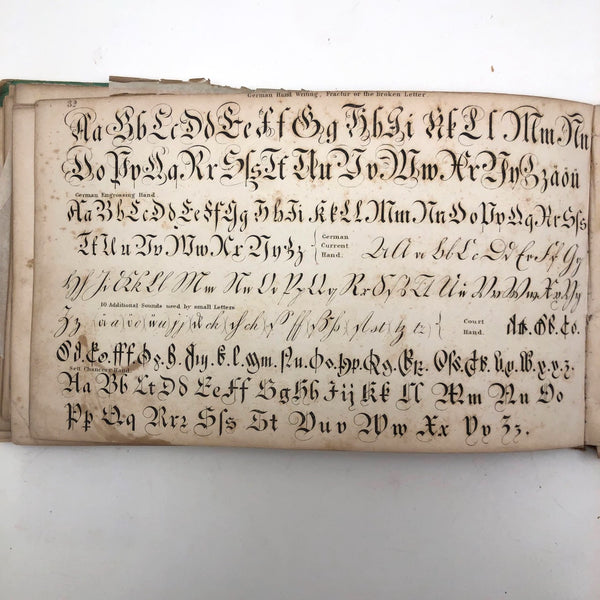 German Hand Writing, Fractur or the Broken Letter
32
Aa Bb Cc Dd Ee Ff Gg Hh Ii Kk Ll Mm Nn
Oo Pp Qq Rr Sſs Tt Uu Vv Ww Xx Yy Zz äöü
German Engrossing Hand
Aa Bb Cc Dd Ee Ff Gg Hh Ii Kk Ll Mm Nn Oo Pp Qq Rr Sſs
Tt Uu Vv Ww Xx Yy Zz { German Current Hand. Aa Bb Cc Dd Ee Ff Gg
Hh Ii Kk Ll Mm Nn Oo Pp Qq Rr Sſs Tt Uu Vv Ww Xx Yy
10 Additional Sounds used by small Letters
Zz { Court Hand.
Sett Chancery Hand
Aa Bb Cc Dd Ee Ff Gg Hh Iij Kk Ll Mm Nn Oo
Pp Qq Rrz Sſs Tt Vuv Ww Xx Yy Zz.